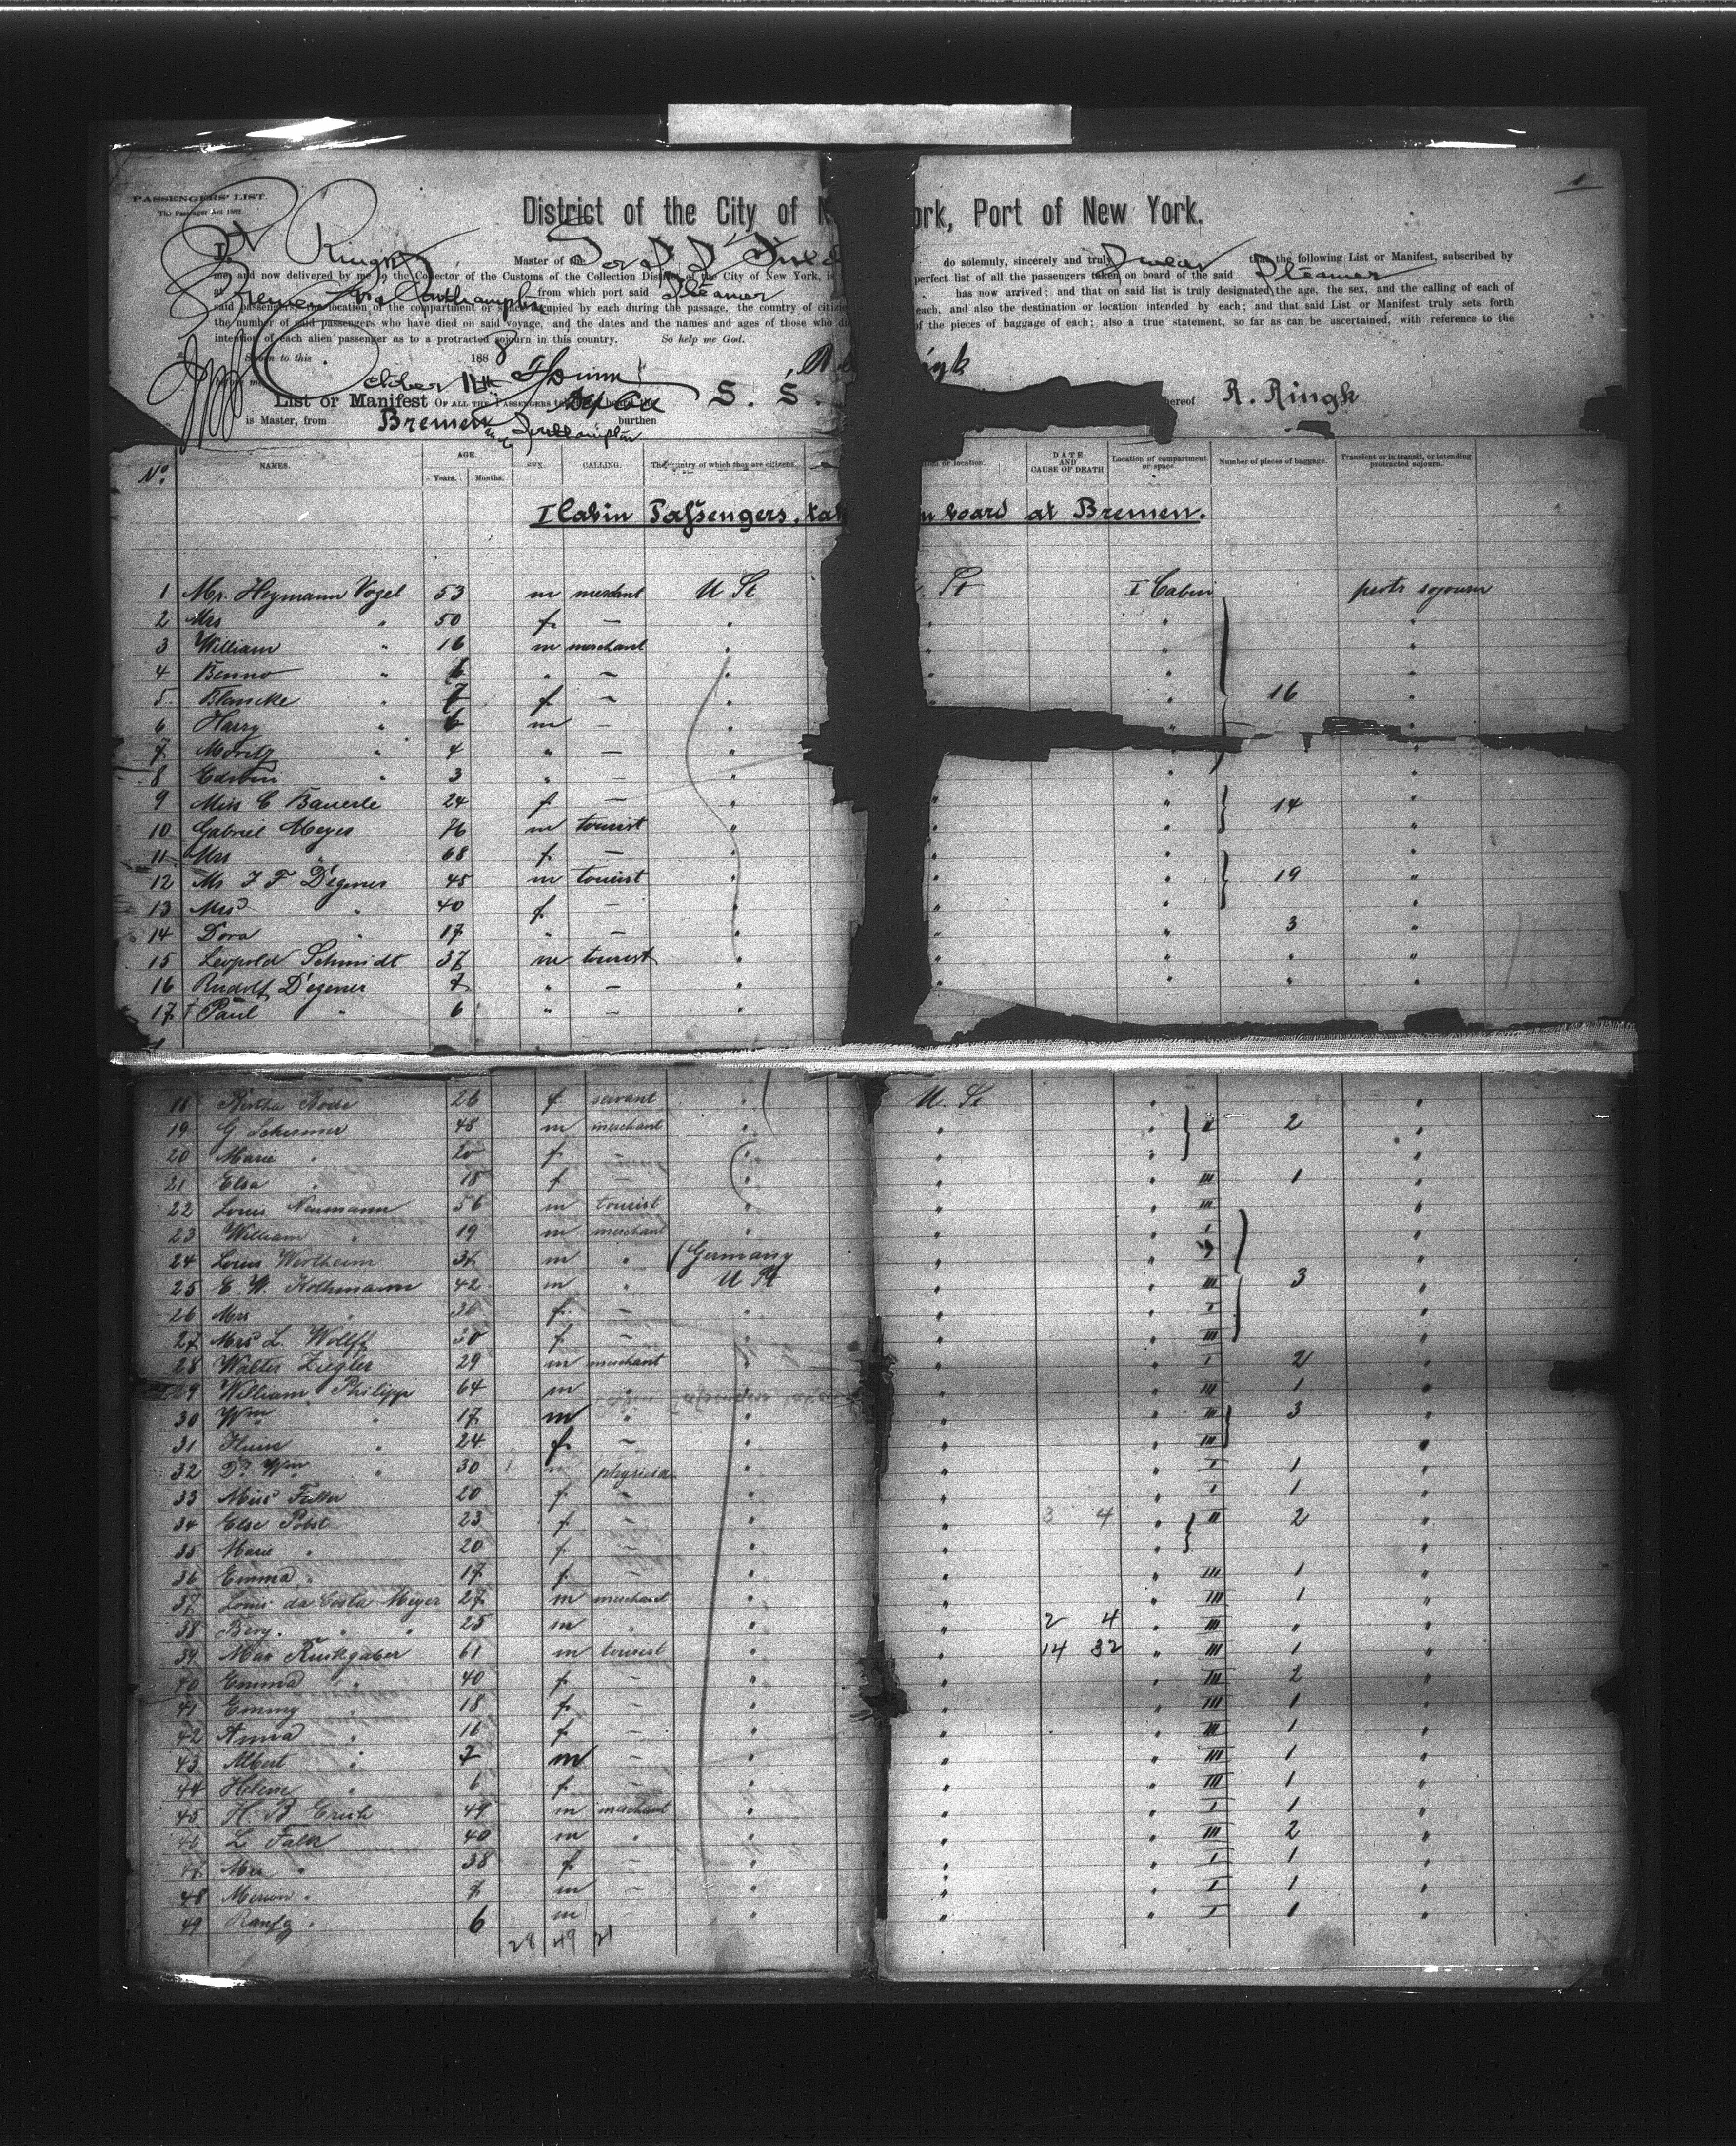 1
PASSENGERS' LIST.
The Passenger Act 1882
District of the City of N ork, Port of New York.
I, R Ringk Master of the do solemnly, sincerely and truly swear that the following List or Manifest, subscribed by
me, and now delivered by me to the Collector of the Customs of the Collection District of the City of New York, is perfect list of all the passengers taken on board of the said Steamer
at Bremen via Southampton from which port said Steamer has now arrived; and that on said list is truly designated the age, the sex, and the calling of each of
said passengers, the location of the compartment or space occupied by each during the passage, the country of citiz each, and also the destination or location intended by each; and that said List or Manifest truly sets forth
the number of said passengers who have died on said voyage, and the dates and the names and ages of those who di of the pieces of baggage of each; also a true statement, so far as can be ascertained, with reference to the
intention of each alien passenger as to a protracted sojourn in this country. So help me God.
Sworn to this October 11th 1888
List or Manifest OF ALL THE PASSENGERS S. S. hereof R. Ringk
is Master, from Bremen and Southampton burthen
No. NAMES. AGE. Years. Months. SEX. CALLING. The country of which they are citizens. or location. DATE AND CAUSE OF DEATH Location of compartment or space. Number of pieces of baggage. Transient or in transit, or intending protracted sojourn.
I Cabin Passengers, tak n board at Bremen.
1 Mr. Heymann Vogel 53 m merchant U St St I Cabin protr sojourn
2 Mrs " 50 f — " " "
3 William " 16 m merchant " " " "
4 Benno " 6 " — " " " "
5 Blancke " 7 f — " " 16 "
6 Harry " 6 m — " " "
7 Moritz " 4 " — " "
8 Edwin " 3 " — " " "
9 Miss C Bauerle 24 f — " " " 14 "
10 Gabriel Meyer 76 m tourist " " " "
11 Mrs " 68 f — " " " "
12 Mr J F D'egener 45 m tourist " " " 19 "
13 Mrs " 40 f — " " " "
14 Dora " 17 " — " " " 3 "
15 Leopold Schmidt 37 m tourist " " " " "
16 Rudolf D'egener 7 " — " " " " "
17 Paul " 6 " — "
18 Bertha Rode 26 f servant " U. St " "
19 G Schirmer 48 m merchant " " " II 2 "
20 Marie " 20 f — " " " "
21 Elsa " 18 f — " " " III 1 "
22 Louis Neumann 56 m tourist " " " III "
23 William " 19 m merchant " " " I "
24 Louis Wertheim 37 m " Germany " " "
25 E. W. Kothmann 42 m " U St " " III 3 "
26 Mrs " 30 f — " " " I "
27 Mrs L. Wolff 30 f — " " " III "
28 Walter Ziegler 29 m merchant " " " I 2 "
29 William Philipp 64 m " " " " III 1 "
30 Wm " 17 m " " " " III 3 "
31 " 24 f — " " " III "
32 Dr. Wm " 30 m physician " " " I 1 "
33 Miss 20 f — " " " I 1 "
34 Else Pabst 23 f — " " 3 4 " II 2 "
35 Marie " 20 f — " " " "
36 Emma " 17 f — " " " III 1 "
37 Louis da Costa Meyer 27 m merchant " " " III 1 "
38 " " 25 m " " " 2 4 " III " "
39 Max Ruckgaber 61 m tourist " " 14 32 " III 1 "
40 Emma " 40 f — " " " III 2 "
41 Emmy " 18 f — " " " III 1 "
42 Anna " 16 f — " " " III 1 "
43 Albert " 7 m — " " " III 1 "
44 Helene " 6 f — " " " III 1 "
45 H. B Erich 49 m merchant " " " I 1 "
46 L Falk 40 m " " " " III 2 "
47 Mrs " 38 f — " " " I 1 "
48 " 7 m — " " " I 1 "
49 " 6 m — " " " I 1 "
28 49 21